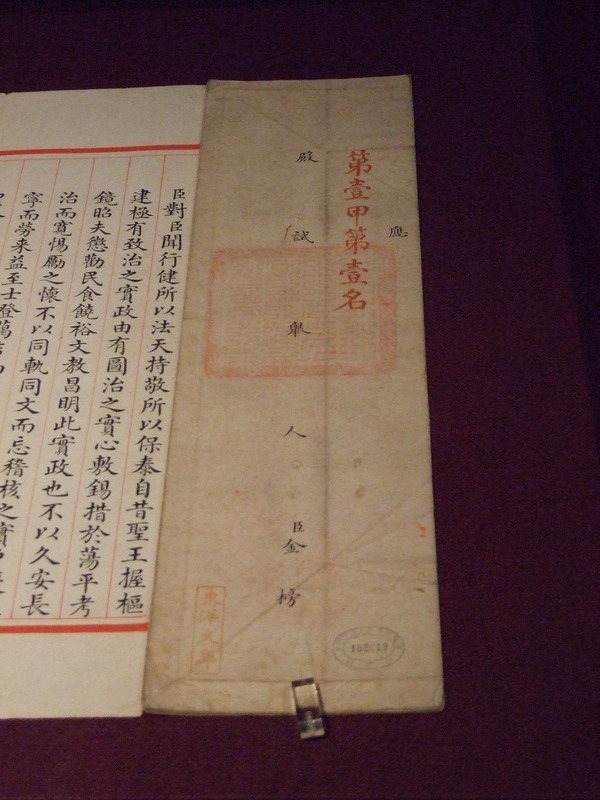 應
第壹甲第壹名
殿試舉人臣金榜
東洋文庫
臣對臣聞行健所以法天持敬所以保泰自昔聖王握樞
建極有致治之實政由有圖治之實心敷錫措於蕩平考
鏡昭夫懲勸民食饒裕文教昌明此實政也不以久安長
治而寬惕勵之懷不以同軌同文而忘稽核之實
寧而勞来益至士登萬